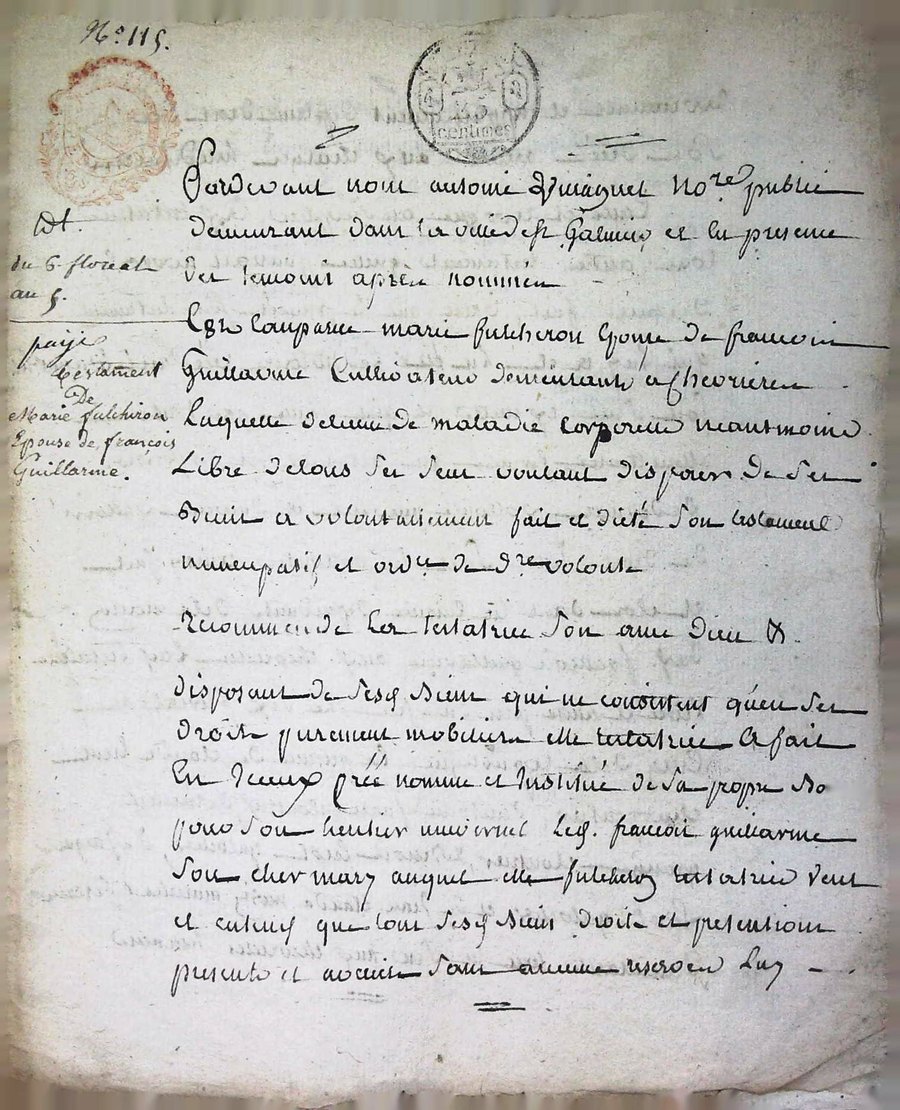 N° 115.
centimes
Pardevant nous antoine notre public
demeurant dans la ville de st Galmier et en presence
des temoins après nommés
Est comparue marie fulcheron épouse de francois
Guillarme Cultivateur demeurante a Chevrieres
Laquelle detenue de maladie corporelle neantmoins
Libre de tous ses sens voulant disposer de ses
Biens a volontairement fait et dicté Son testament
nuncupatif et ordce de dre volonte
recommende La testatrice Son ame Dieu &
disposant de Sesd Biens qui ne consistent qu'en Ses
Droits purement mobiliers elle testatrice a fait
En Iceux créé nommé et Institué de Sa propre
pour Son heritier universel Led. francois guillarme
Son cher mary auquel elle fulcheron testatrice veut
et entend que tous Sesd Biens droits et pretentions
presents et avenir Sans aucune reserve Luy
tdt.
du 6 floreal
an 5.
payé
testament
De
Marie fulchiron
Epouse de françois
Guillarme.